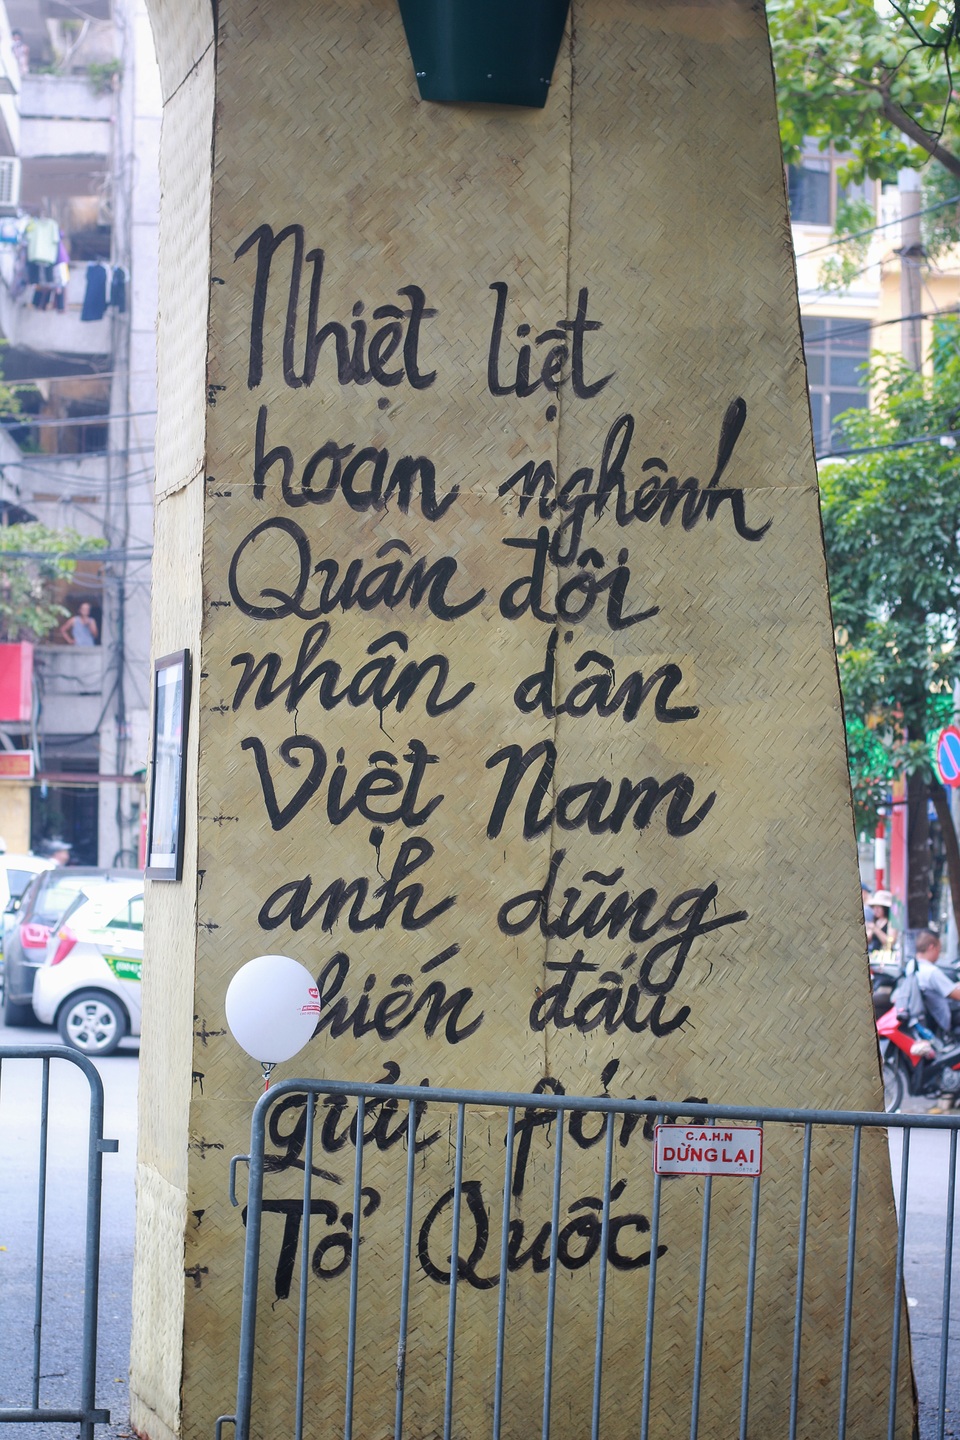 Nhiệt liệt
hoan nghênh
Quân đội
nhân dân
Việt Nam
anh dũng
hiến đấu
giải fóng
Tổ Quốc
C.A.H.N
DỪNG LẠI